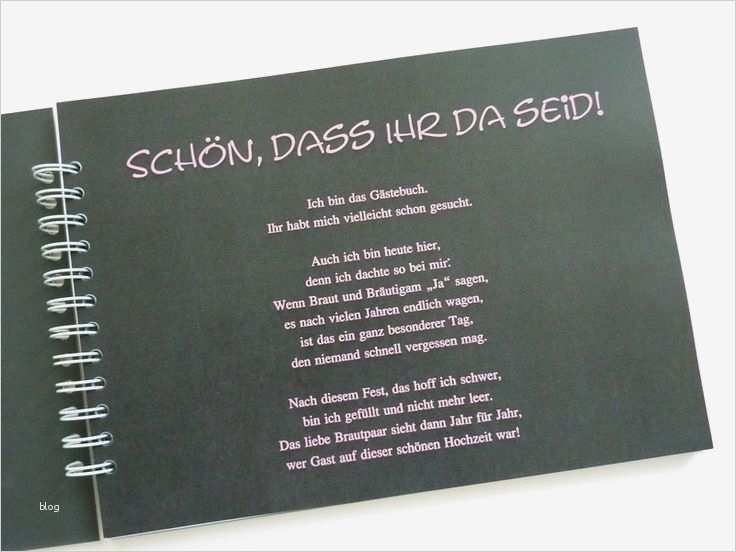 SCHÖN, DASS IHR DA SEiD!
Ich bin das Gästebuch.
Ihr habt mich vielleicht schon gesucht.
Auch ich bin heute hier,
denn ich dachte so bei mir:
Wenn Braut und Bräutigam „Ja“ sagen,
es nach vielen Jahren endlich wagen,
ist das ein ganz besonderer Tag,
den niemand schnell vergessen mag.
Nach diesem Fest, das hoff ich schwer,
bin ich gefüllt und nicht mehr leer.
Das liebe Brautpaar sieht dann Jahr für Jahr,
wer Gast auf dieser schönen Hochzeit war!
blog